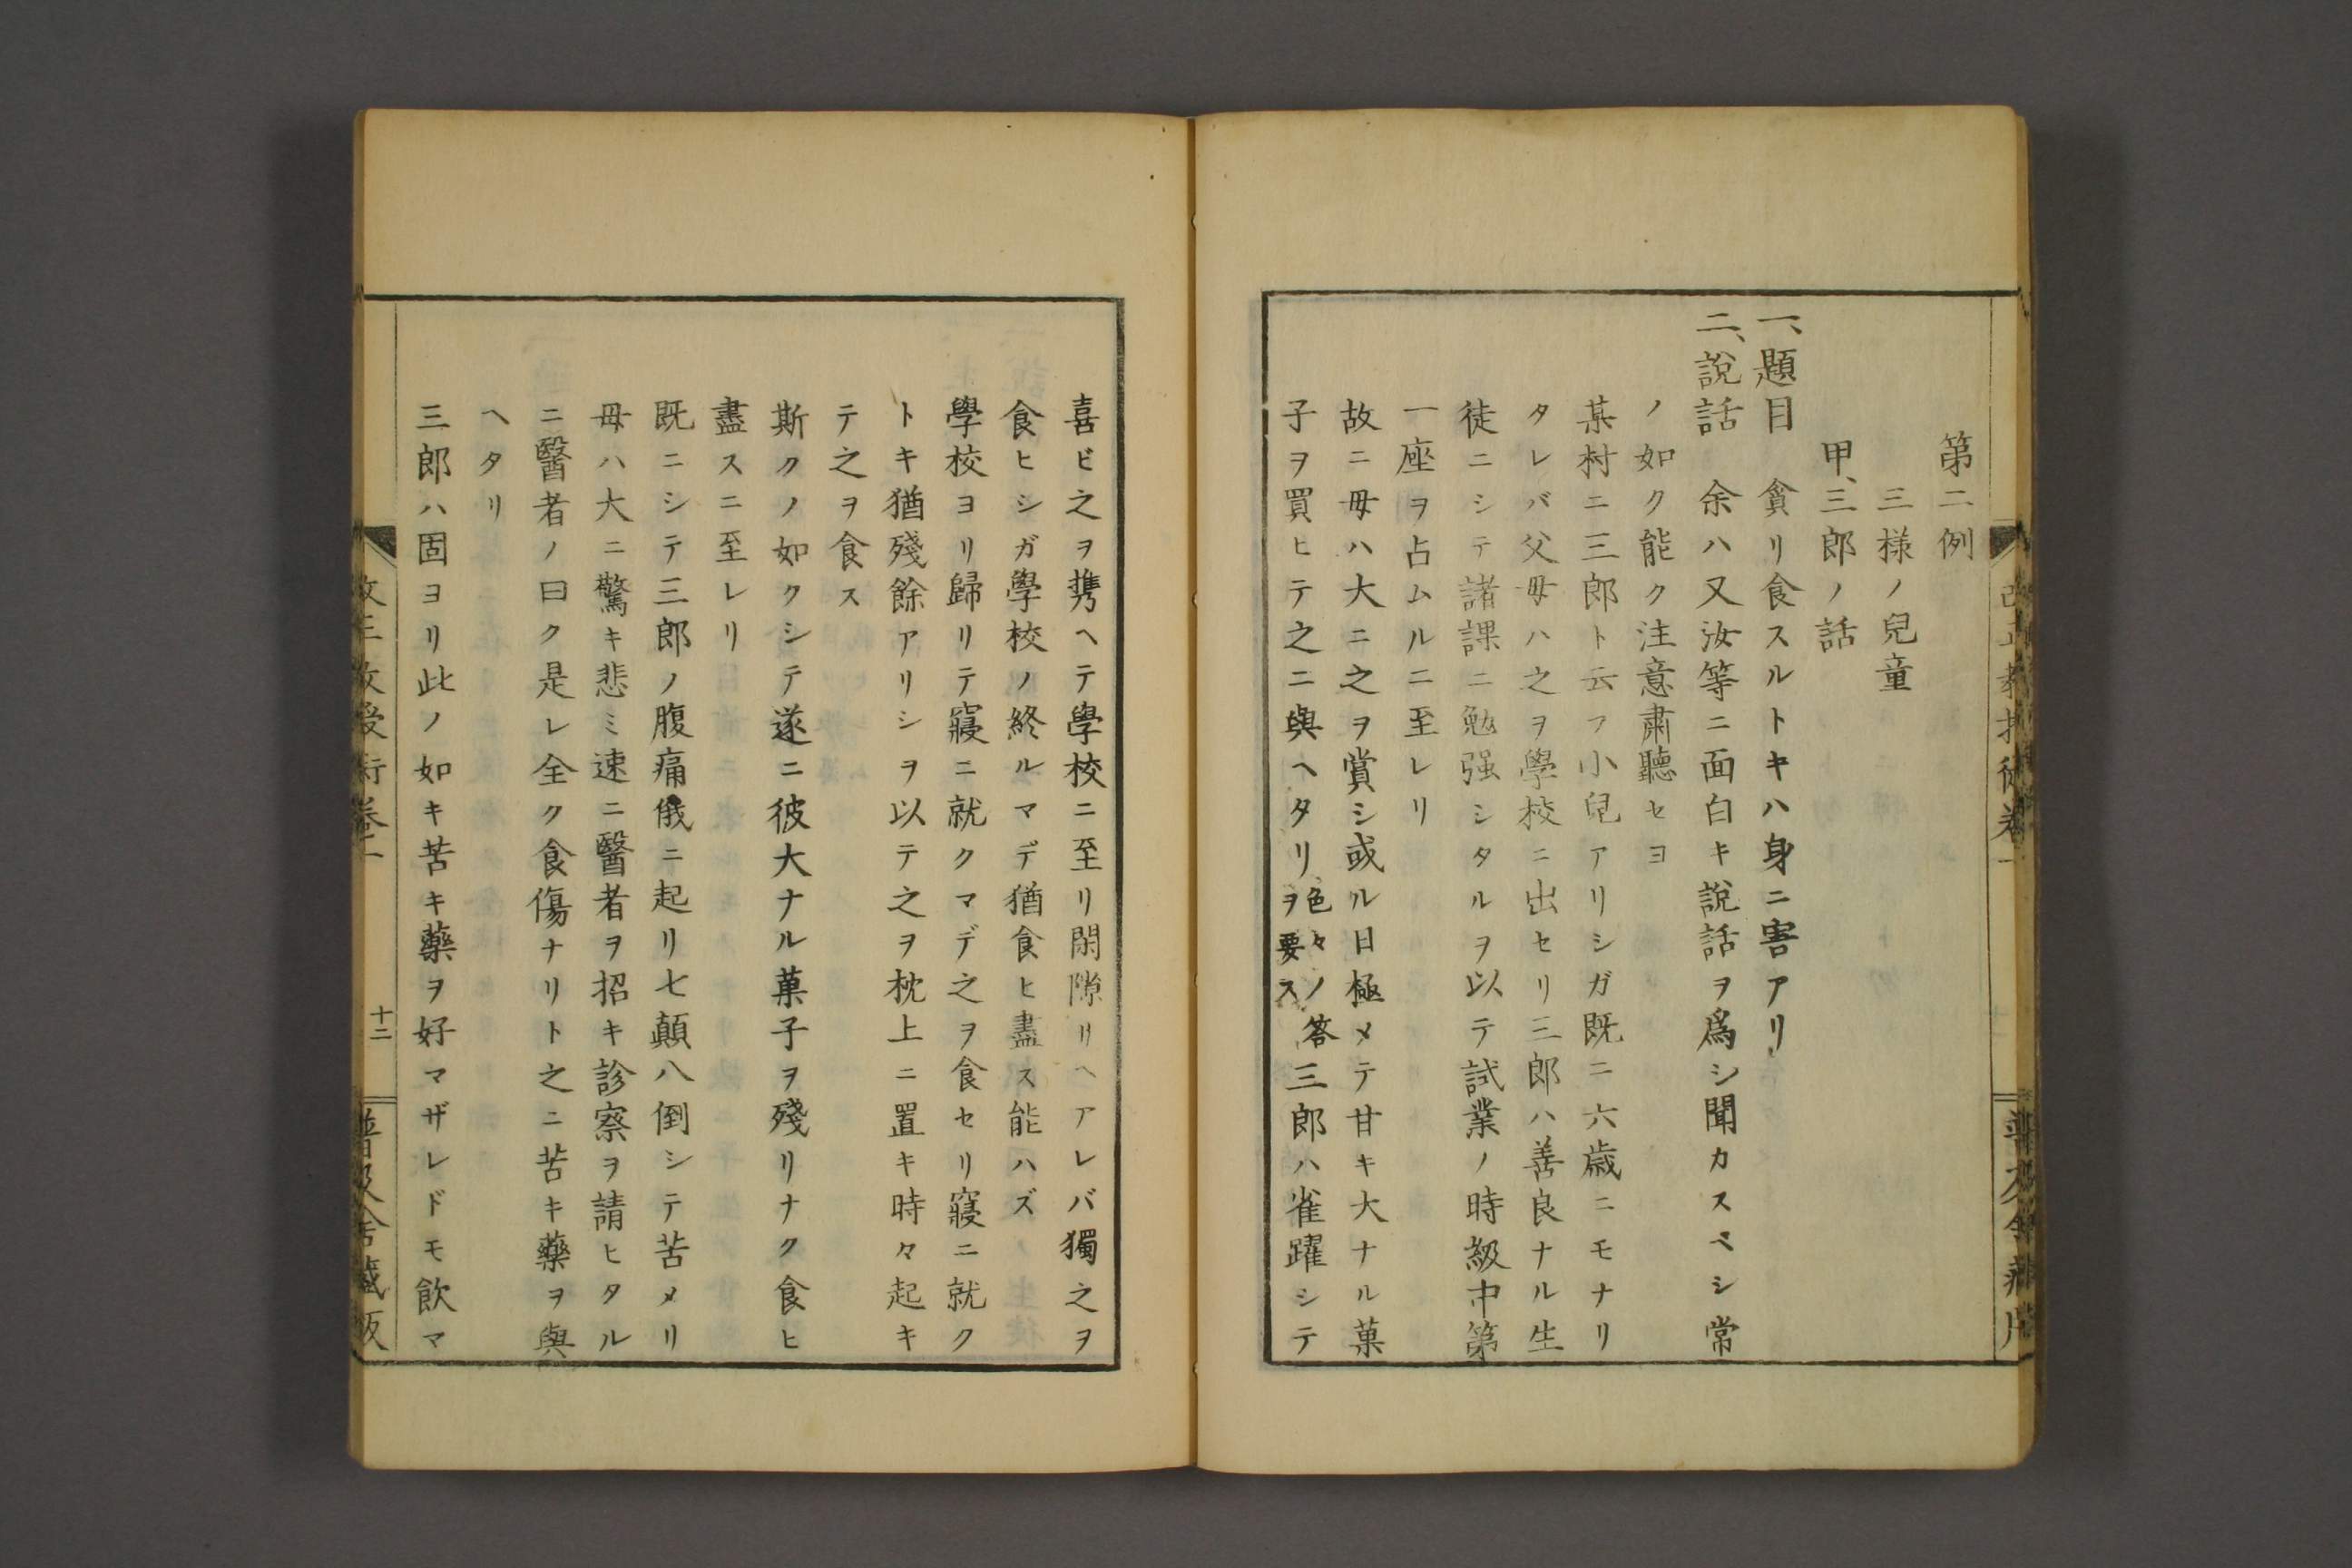 第二例
三樣ノ兒童
甲、三郎ノ話
一、題目 貪リ食スルトキハ身ニ害アリ
二、說話 余ハ又汝等ニ面白キ說話ヲ爲シ聞カスベシ常
ノ如ク能ク注意肅聽セヨ
某村ニ三郎ト云フ小兒アリシガ既ニ六歲ニモナリ
タレバ父母ハ之ヲ學校ニ出セリ三郎ハ善良ナル生
徒ニシテ諸課ニ勉强シタルヲ以テ試業ノ時級中第
一座ヲ占ムルニ至レリ
故ニ母ハ大ニ之ヲ賞シ或ル日極メテ甘キ大ナル菓
子ヲ買ヒテ之ニ與ヘタリ色々ノ答ヲ要ス三郎ハ雀躍シテ
喜ビ之ヲ携ヘテ學校ニ至リ閑隙サヘアレバ獨之ヲ
食ヒシガ學校ノ終ルマデ猶食ヒ盡ス能ハズ
學校ヨリ歸リテ寢ニ就クマデ之ヲ食セリ寢ニ就ク
トキ猶殘餘アリシヲ以テ之ヲ枕上ニ置キ時々起キ
テ之ヲ食ス
斯クノ如クシテ遂ニ彼大ナル菓子ヲ殘リナク食ヒ
盡スニ至レリ
既ニシテ三郎ノ腹痛俄ニ起リ七顛八倒シテ苦メリ
母ハ大ニ驚キ悲ミ速ニ醫者ヲ招キ診察ヲ請ヒタル
ニ醫者ノ曰ク是レ全ク食傷ナリト之ニ苦キ藥ヲ與
ヘタリ
三郎ハ固ヨリ此ノ如キ苦キ藥ヲ好マザレドモ飮マ
改正敎授術卷一
十二
普及舍藏版